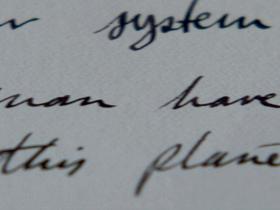 system
have
this plane